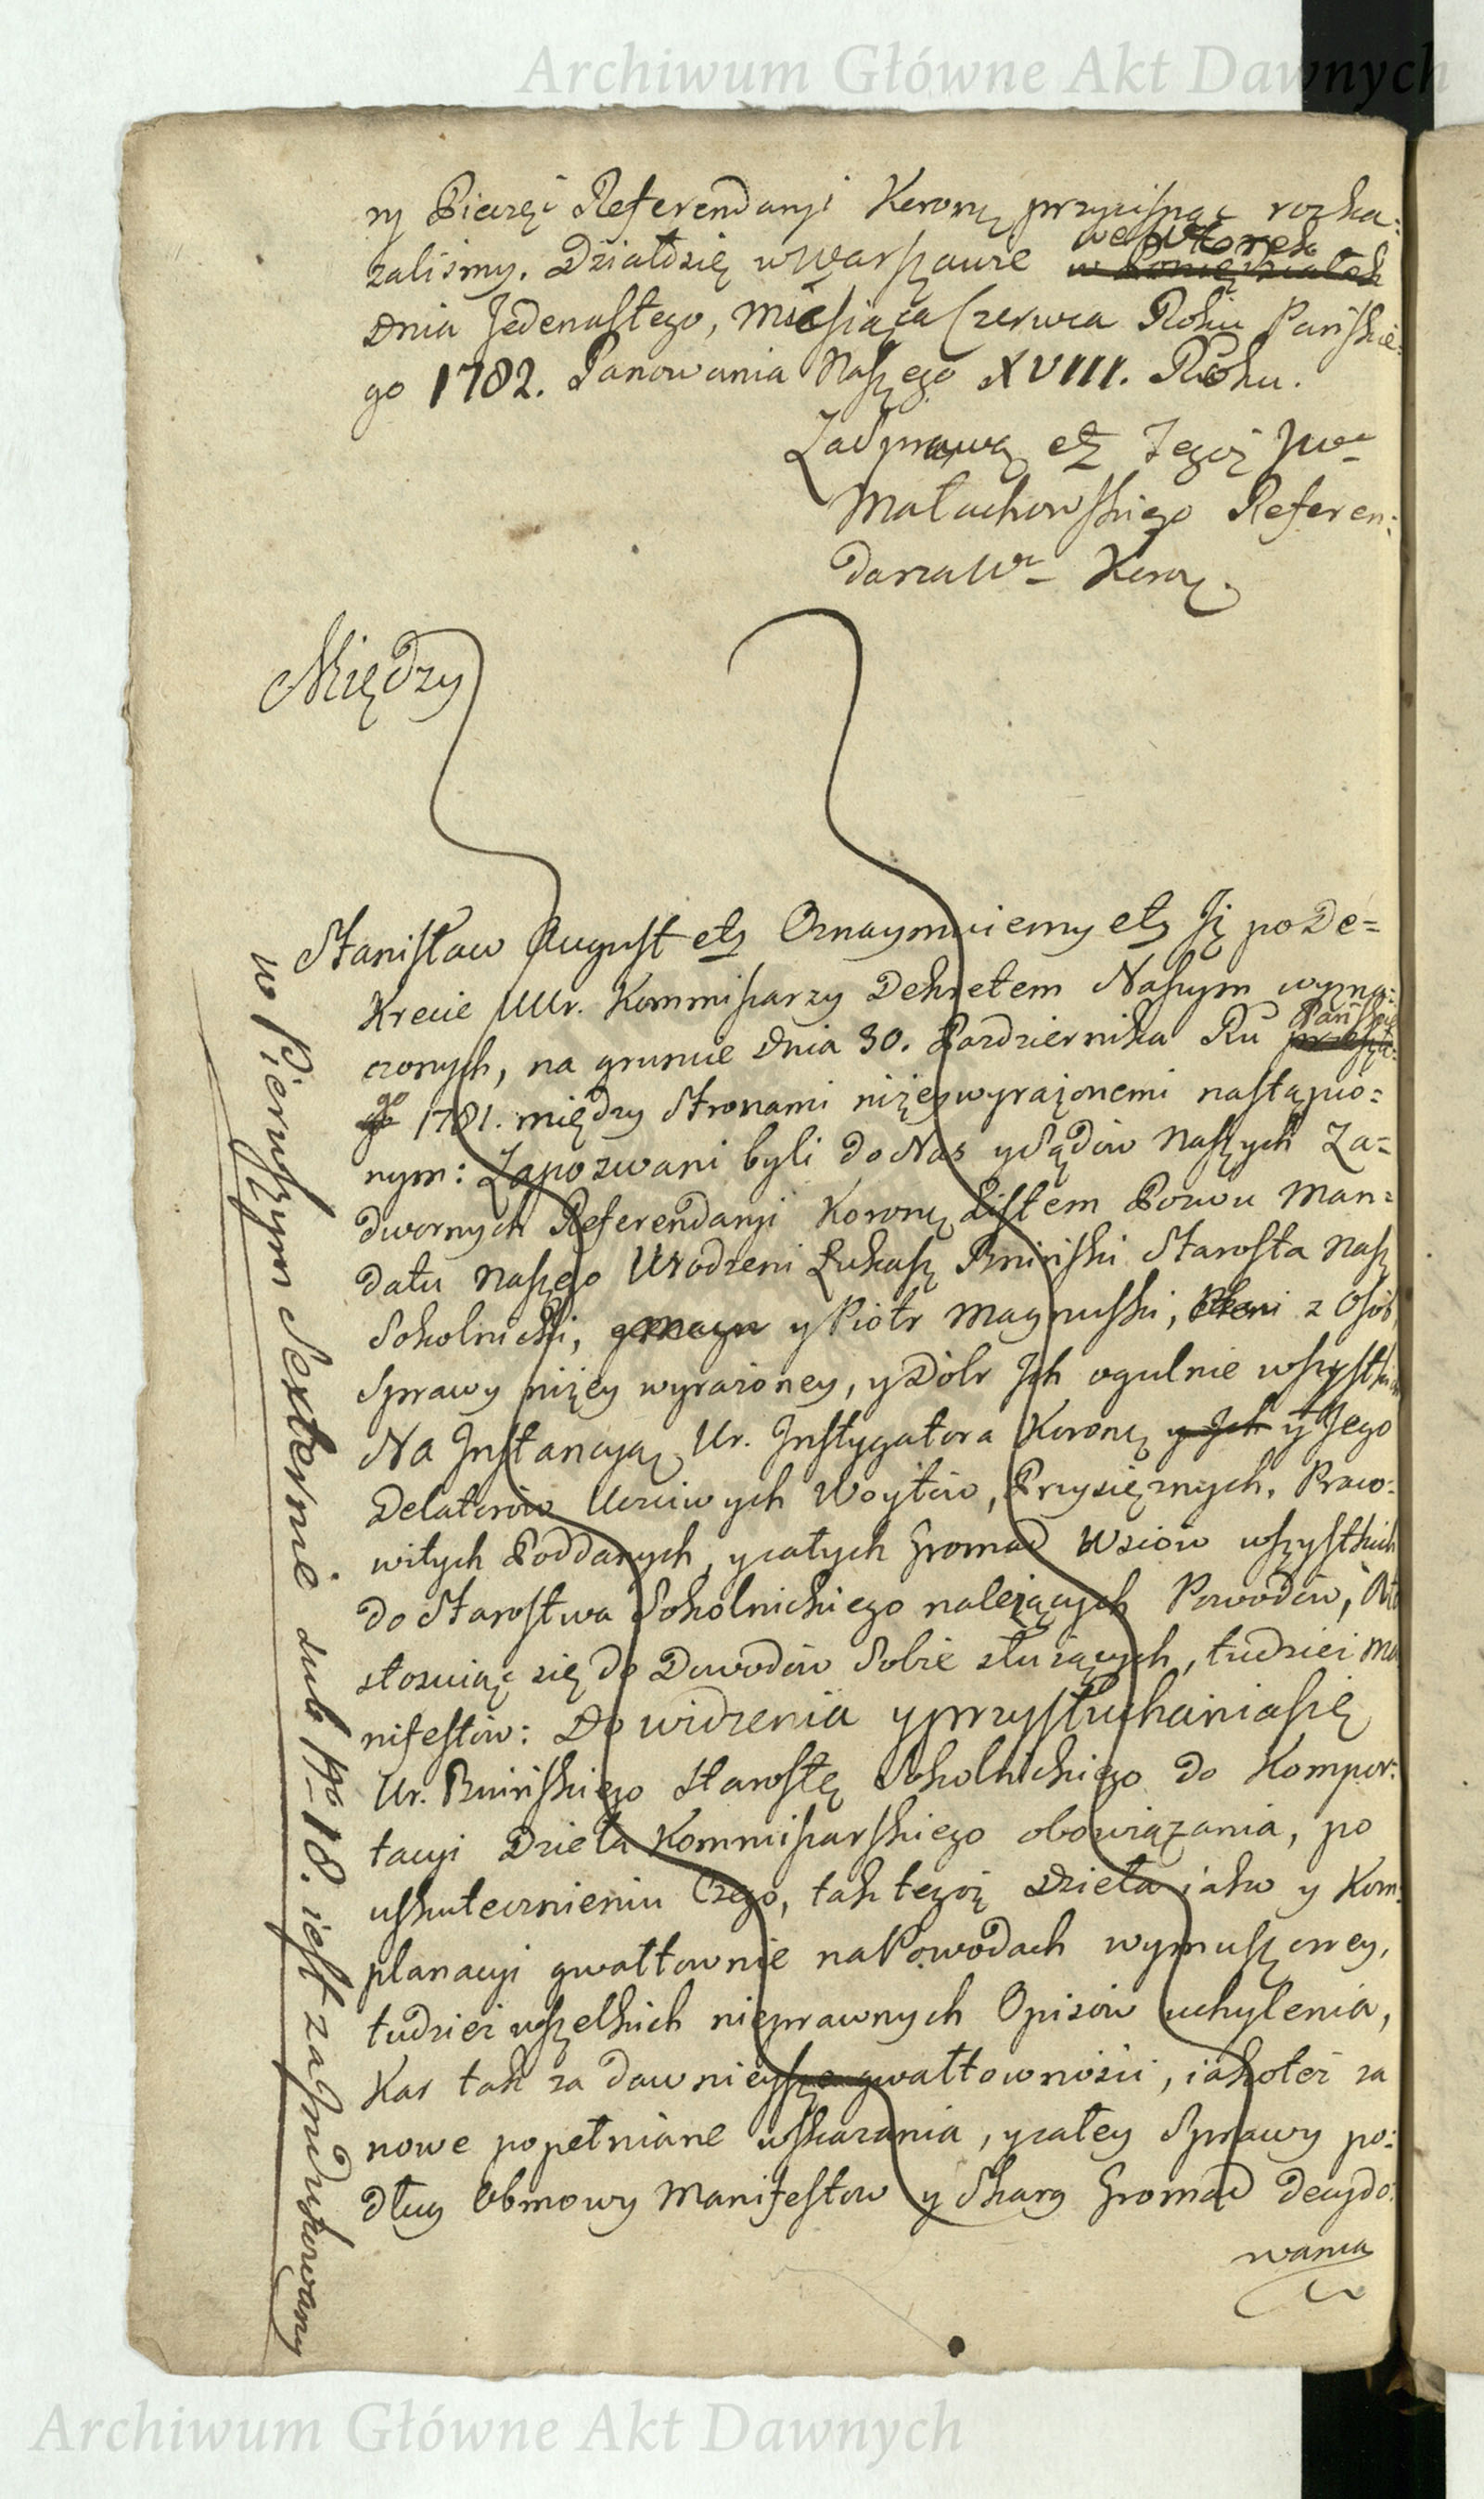 Archiwum Główne Akt Dawnych
ny Pieczęć Referendaryi Koronę przycisnąć rozka:
zalismy. Działosię w Warszawie we Wtorek w Poniedziałek
Dnia Jedenastego, Miesiąca Czerwca Roku Pańskie:
go 1782. Panowania Naszego XVIII. Roku.
Za Sprawą etz Tegoż JWo
Małachowskiego Referen:
darza Wo Koron.
Między
Stanisław August etz Oznaymuiemy etz Jż po De=
krecie Ur. Kommisarzy Dekretem Naszym wyzna:
czonych, na gruncie Dnia 30. Pazdziernika Ru Pańskie
go 1781. między Stronami niżey wyrażonemi nastąpio=
nym: Zapozwani byli do Nas y Sądów Naszych Za=
dwornych Referendaryi Koronę Listem Pozwu Man=
datu Naszego Urodzeni Łukasz Bniński Starosta Nasz
Sokolnicki, y Piotr Magnuski, z Osób,
Sprawy niżey wyrażoney, y Dóbr Jch ogulnie wszystkich
Na Jnstancyą Ur. Jnstygatora Koronę y Jch y Jego
Delatorów Uczciwych Woytów, Przysięznych, Praco:
witych Poddanych, y całych Gromad Wsiów wszystkich
do Starostwa Sokolnickiego należących Powodów,
stosuiąc się do Dowodów Sobie służących, tudzież Ma
nifestów: Do widzenia y przysłuchania się
Ur. Bnińskiego Starostę Sokolnickiego do Kompor:
tacyi Dzieła Kommisarskiego obowiązania, po
uskutecznieniu Czego, tak tegoż Dzieła iako y Kom:
planacyi gwałtownie na Powodach wymuszoney,
tudzież wszelkich nieprawnych Opisów uchylenia,
Kar tak za dawnieysze gwałtowności, iakoteż za
nowe popełniane wskazania, y całey Sprawy po:
dług Obmowy Manifestow y Skarg Gromad decydo:
wania
w Pierwszym Sexternie sub No 18. iest zaprodukowany
Archiwum Główne Akt Dawnych